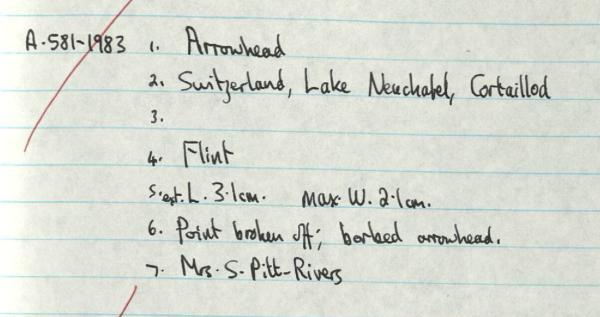 A.581-1983 1. Arrowhead
2. Switzerland, Lake Neuchatel, Cortaillod
3.
4. Flint
5. ext. L. 3.1cm. max W. 2.1cm.
6. Point broken off; barbed arrowhead.
7. Mrs. S. Pitt-Rivers